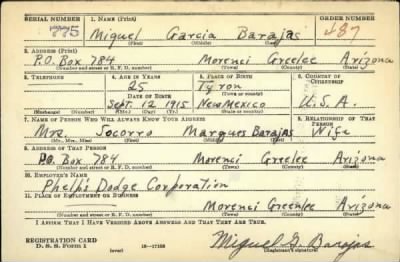 SERIAL NUMBER 1. NAME (Print) ORDER NUMBER
Miguel Garcia Barajas 487
(First) (Middle) (Last)
2. ADDRESS (Print)
P.O. Box 784 Morenci Greelee Arizona
(Number and street or R. F. D. number) (Town) (County) (State)
3. TELEPHONE 4. AGE IN YEARS 5. PLACE OF BIRTH 6. COUNTRY OF CITIZENSHIP
25 Tyron
DATE OF BIRTH (Town or county)
Sept. 12 1915 New Mexico U.S.A.
(Exchange) (Number) (Mo.) (Day) (Yr.) (State or country)
7. NAME OF PERSON WHO WILL ALWAYS KNOW YOUR ADDRESS 8. RELATIONSHIP OF THAT PERSON
Mrs. Socorro Marques Barajas Wife
(Mr., Mrs., Miss) (First) (Middle) (Last)
9. ADDRESS OF THAT PERSON
P.O. Box 784 Morenci Greelee Arizona
(Number and street or R. F. D. number) (Town) (County) (State)
10. EMPLOYER'S NAME
Phelp's Dodge Corporation
11. PLACE OF EMPLOYMENT OR BUSINESS
Morenci Greenlee Arizona
(Number and street or R. F. D. number) (Town) (County) (State)
I AFFIRM THAT I HAVE VERIFIED ABOVE ANSWERS AND THAT THEY ARE TRUE.
REGISTRATION CARD
D. S. S. Form 1 (over) 16—17105 Miguel G. Barajas
(Registrant's signature)